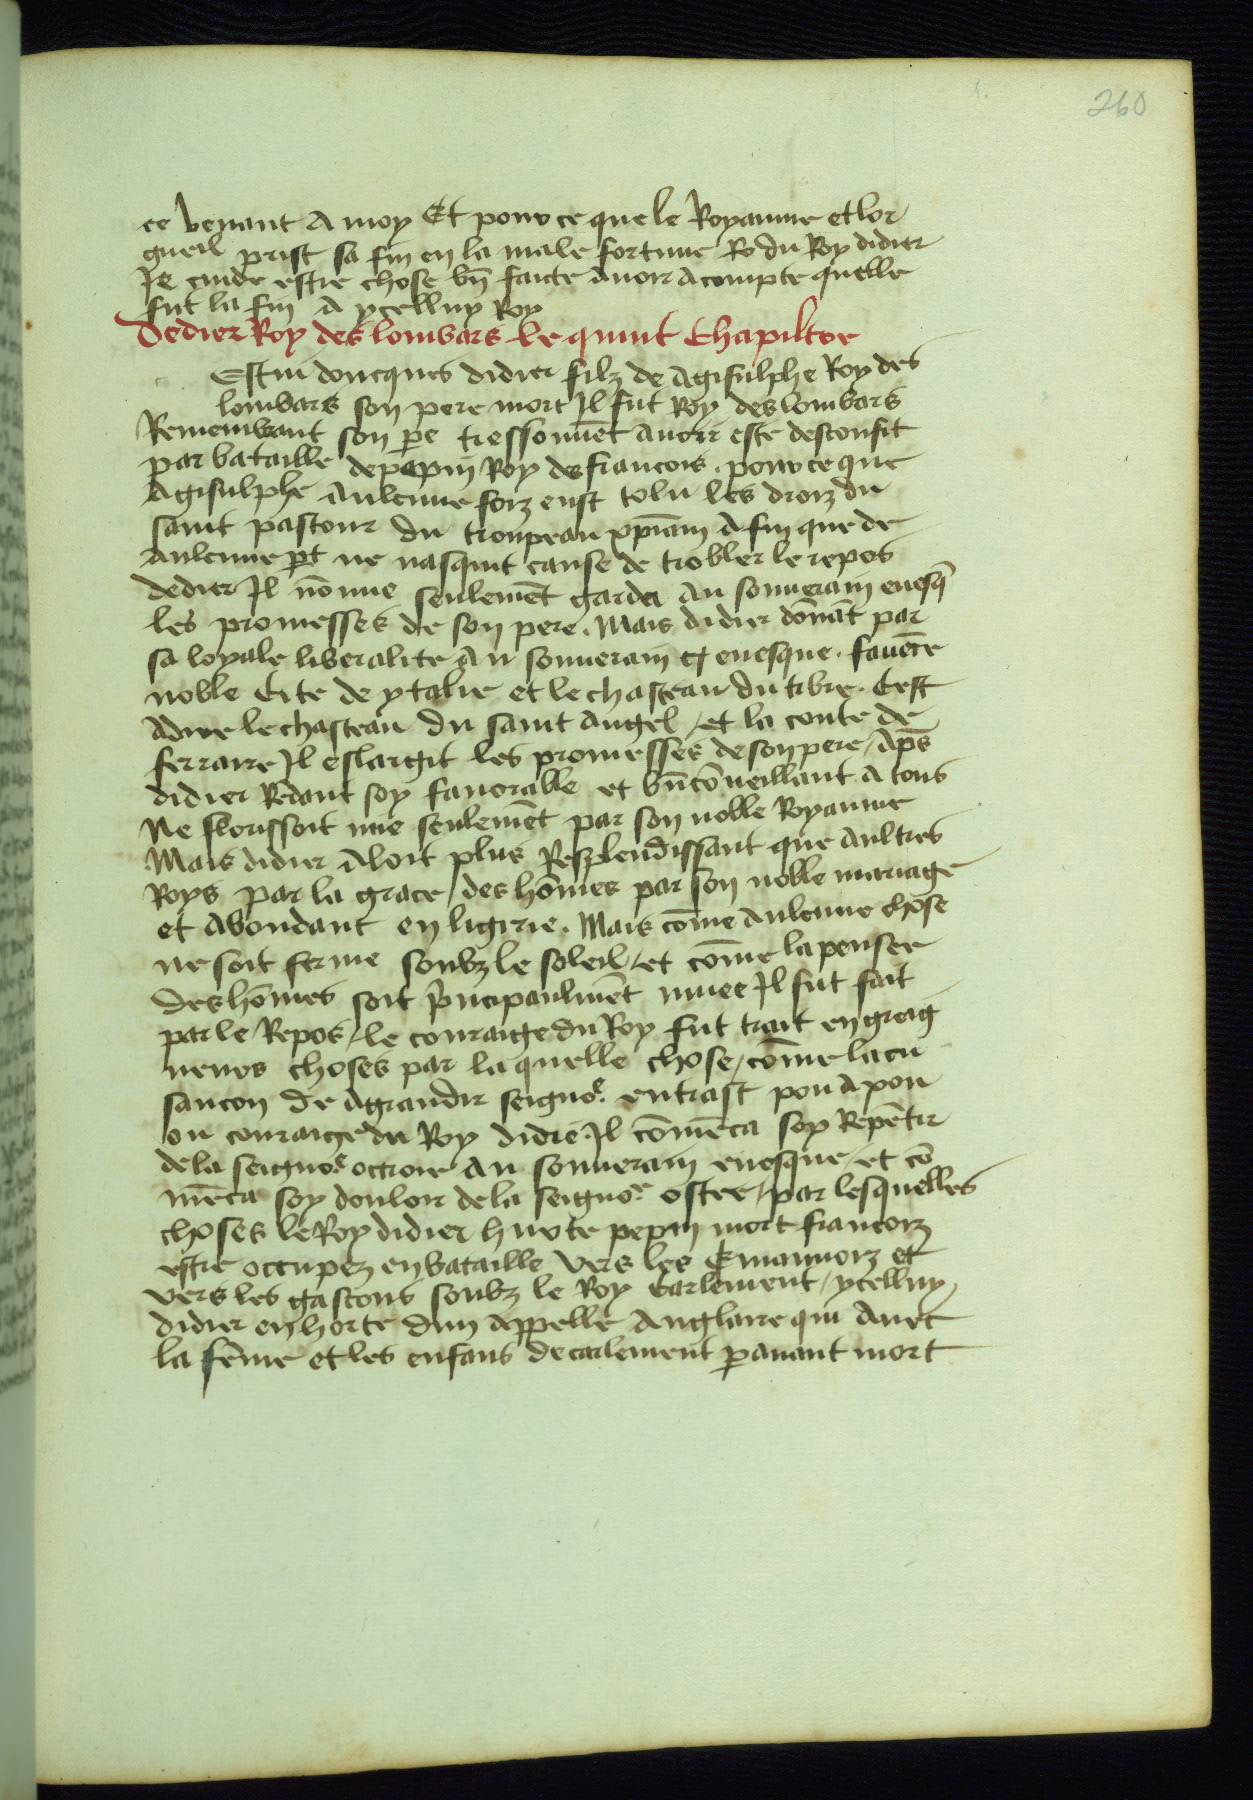 260
ce venant A moy Et pour ce que le Royaume et lor
gueil prist sa fin en la male fortune Ro du Roy didier
Je cuide estre chose bn̄ faicte avoir Acompte quelle
fut la fin A ycelluy Roy
Dedier Roy des lombars le quint Chapiltre
Estm doncques didier filz de Agisulphe Roy des
lombars son pere mort Il fut Roy des lombars
Remembrant son p̄e tressouuēt Auoir este desconfit
par bataille de pepin Roy de francois . pour ce que
Agisulphe Aulcune foiz eust tolu les droiz du
saint pastour du troupeau xp̄iam A fin que de
Aulcune p̄t ne nasquit cause de trobler le repos
dedier Il nō mie seulemēt garda Au souuerain euesq̄
les promesses de son pere . Mais didier dōnāt par
sa loyale liberalite A u souuerain euesque . fauēce
noble Cite de ytalie et le chasteau du tibre . Cest
Adire le chasteau du saint Angel / et la conte de
ferraire Il eslargit les promesses de son pere / Ap̄s
didier Rēdant soy fauorable et bn̄ cōueillant A tous
Ne florissoit mie seulemēt par son noble Royaume
Mais didier Aloit plus Resplendissant que Aultres
Roys par la grace / des hōmes par son noble mariage
et Abondant en ligirie . Mais cōme Aulcune chose
ne soit ferme soubz le soleil / et cōme la pensee
des hōmes soit p̄ncipaulmēt muee Il fut fait
par le Repos / le couraige du Roy fut trait en greig
neurs choses par la quelle chose / cōme la cu
sancon de Agrandir seignoe . entrast pou A pou
ou couraige du Roy didie . Il cōmēca soy Repētir
de la seignoe octroie Au souuerain euesque / et cō
mēca soy douloir de la seignoe ostee / par lesquelles
choses le Roy didier hurte pepin mort francoiz
estre occupez en bataille vers les Emannoiz et
vers les gascons soubz le Roy Carlement / ycelluy
didier en horte dun Appelle Anglaire qui Auec
la fēme et les enfans de carlement p̄auant mort